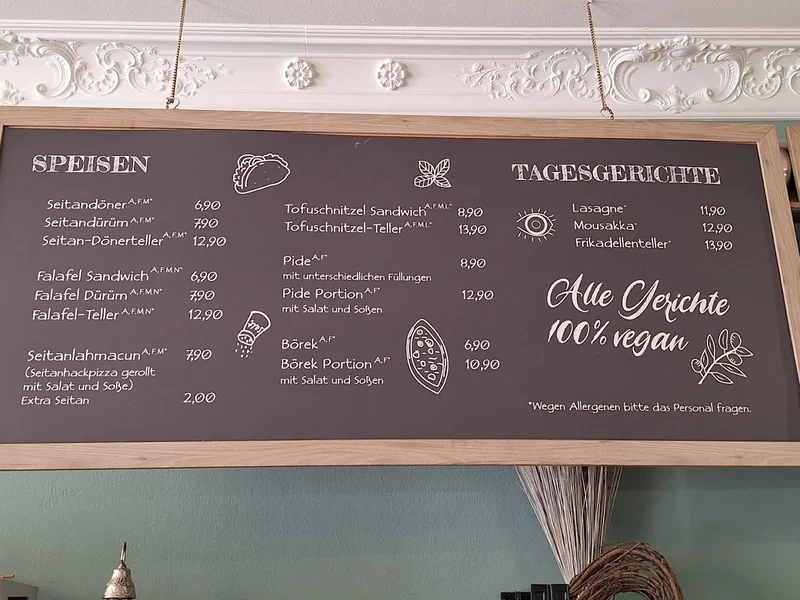 SPEISEN
Seitandöner A,F,M* 6,90
Seitandürüm A,F,M* 7,90
Seitan-Dönerteller A,F,M* 12,90
Falafel Sandwich A,F,M,N* 6,90
Falafel Dürüm A,F,M,N* 7,90
Falafel-Teller A,F,M,N* 12,90
Seitanlahmacun A,F,M* 7,90
(Seitanhackpizza gerollt
mit Salat und Soße)
Extra Seitan 2,00
Tofuschnitzel Sandwich A,F,M,L* 8,90
Tofuschnitzel-Teller A,F,M,L* 13,90
Pide A,F* 8,90
mit unterschiedlichen Füllungen
Pide Portion A,F* 12,90
mit Salat und Soßen
Salt
Börek A,F* 6,90
Börek Portion A,F* 10,90
mit Salat und Soßen
TAGESGERICHTE
Lasagne* 11,90
Mousakka* 12,90
Frikadellenteller* 13,90
Alle Gerichte
100% vegan
*Wegen Allergenen bitte das Personal fragen.